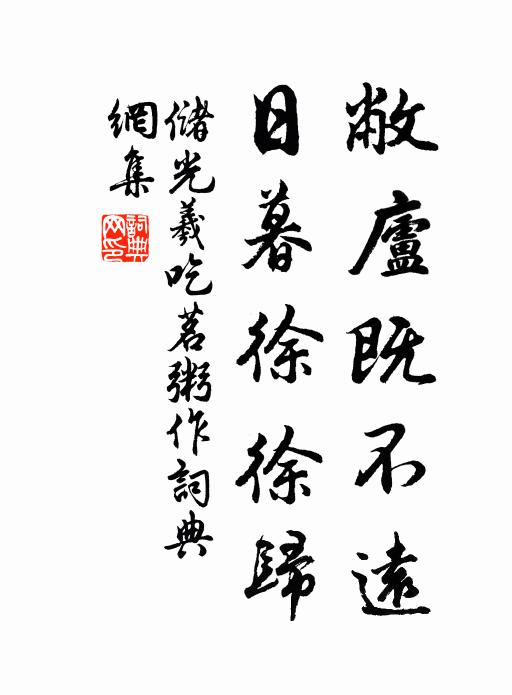 敝廬既不遠
日暮徐徐歸
儲光羲吃茗粥作詞典
網集
詞典
网印